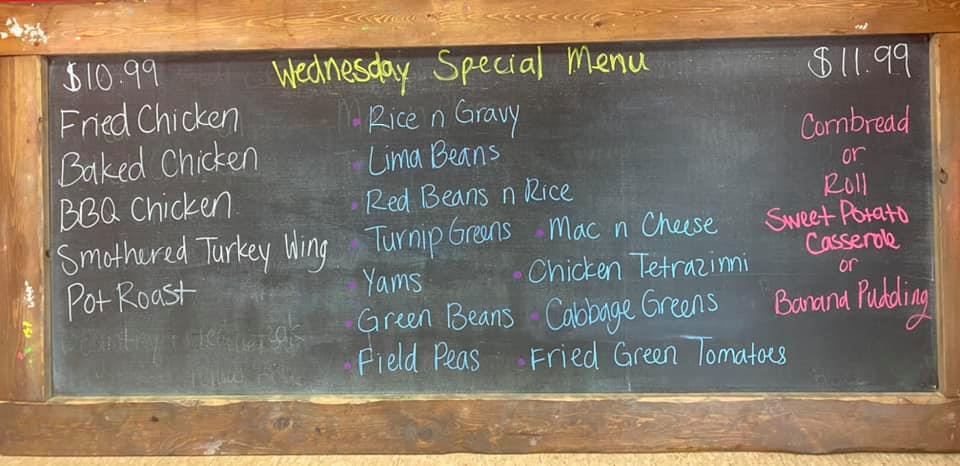 $10.99
Wednesday Special Menu
$11.99
Fried Chicken
Baked Chicken
BBQ Chicken
Smothered Turkey Wing
Pot Roast
• Rice n Gravy
• Lima Beans
• Red Beans n Rice
• Turnip Greens • Mac n Cheese
• Yams • Chicken Tetrazinni
• Green Beans • Cabbage Greens
• Field Peas • Fried Green Tomatoes
Cornbread
or
Roll
Sweet Potato
Casserole
or
Banana Pudding